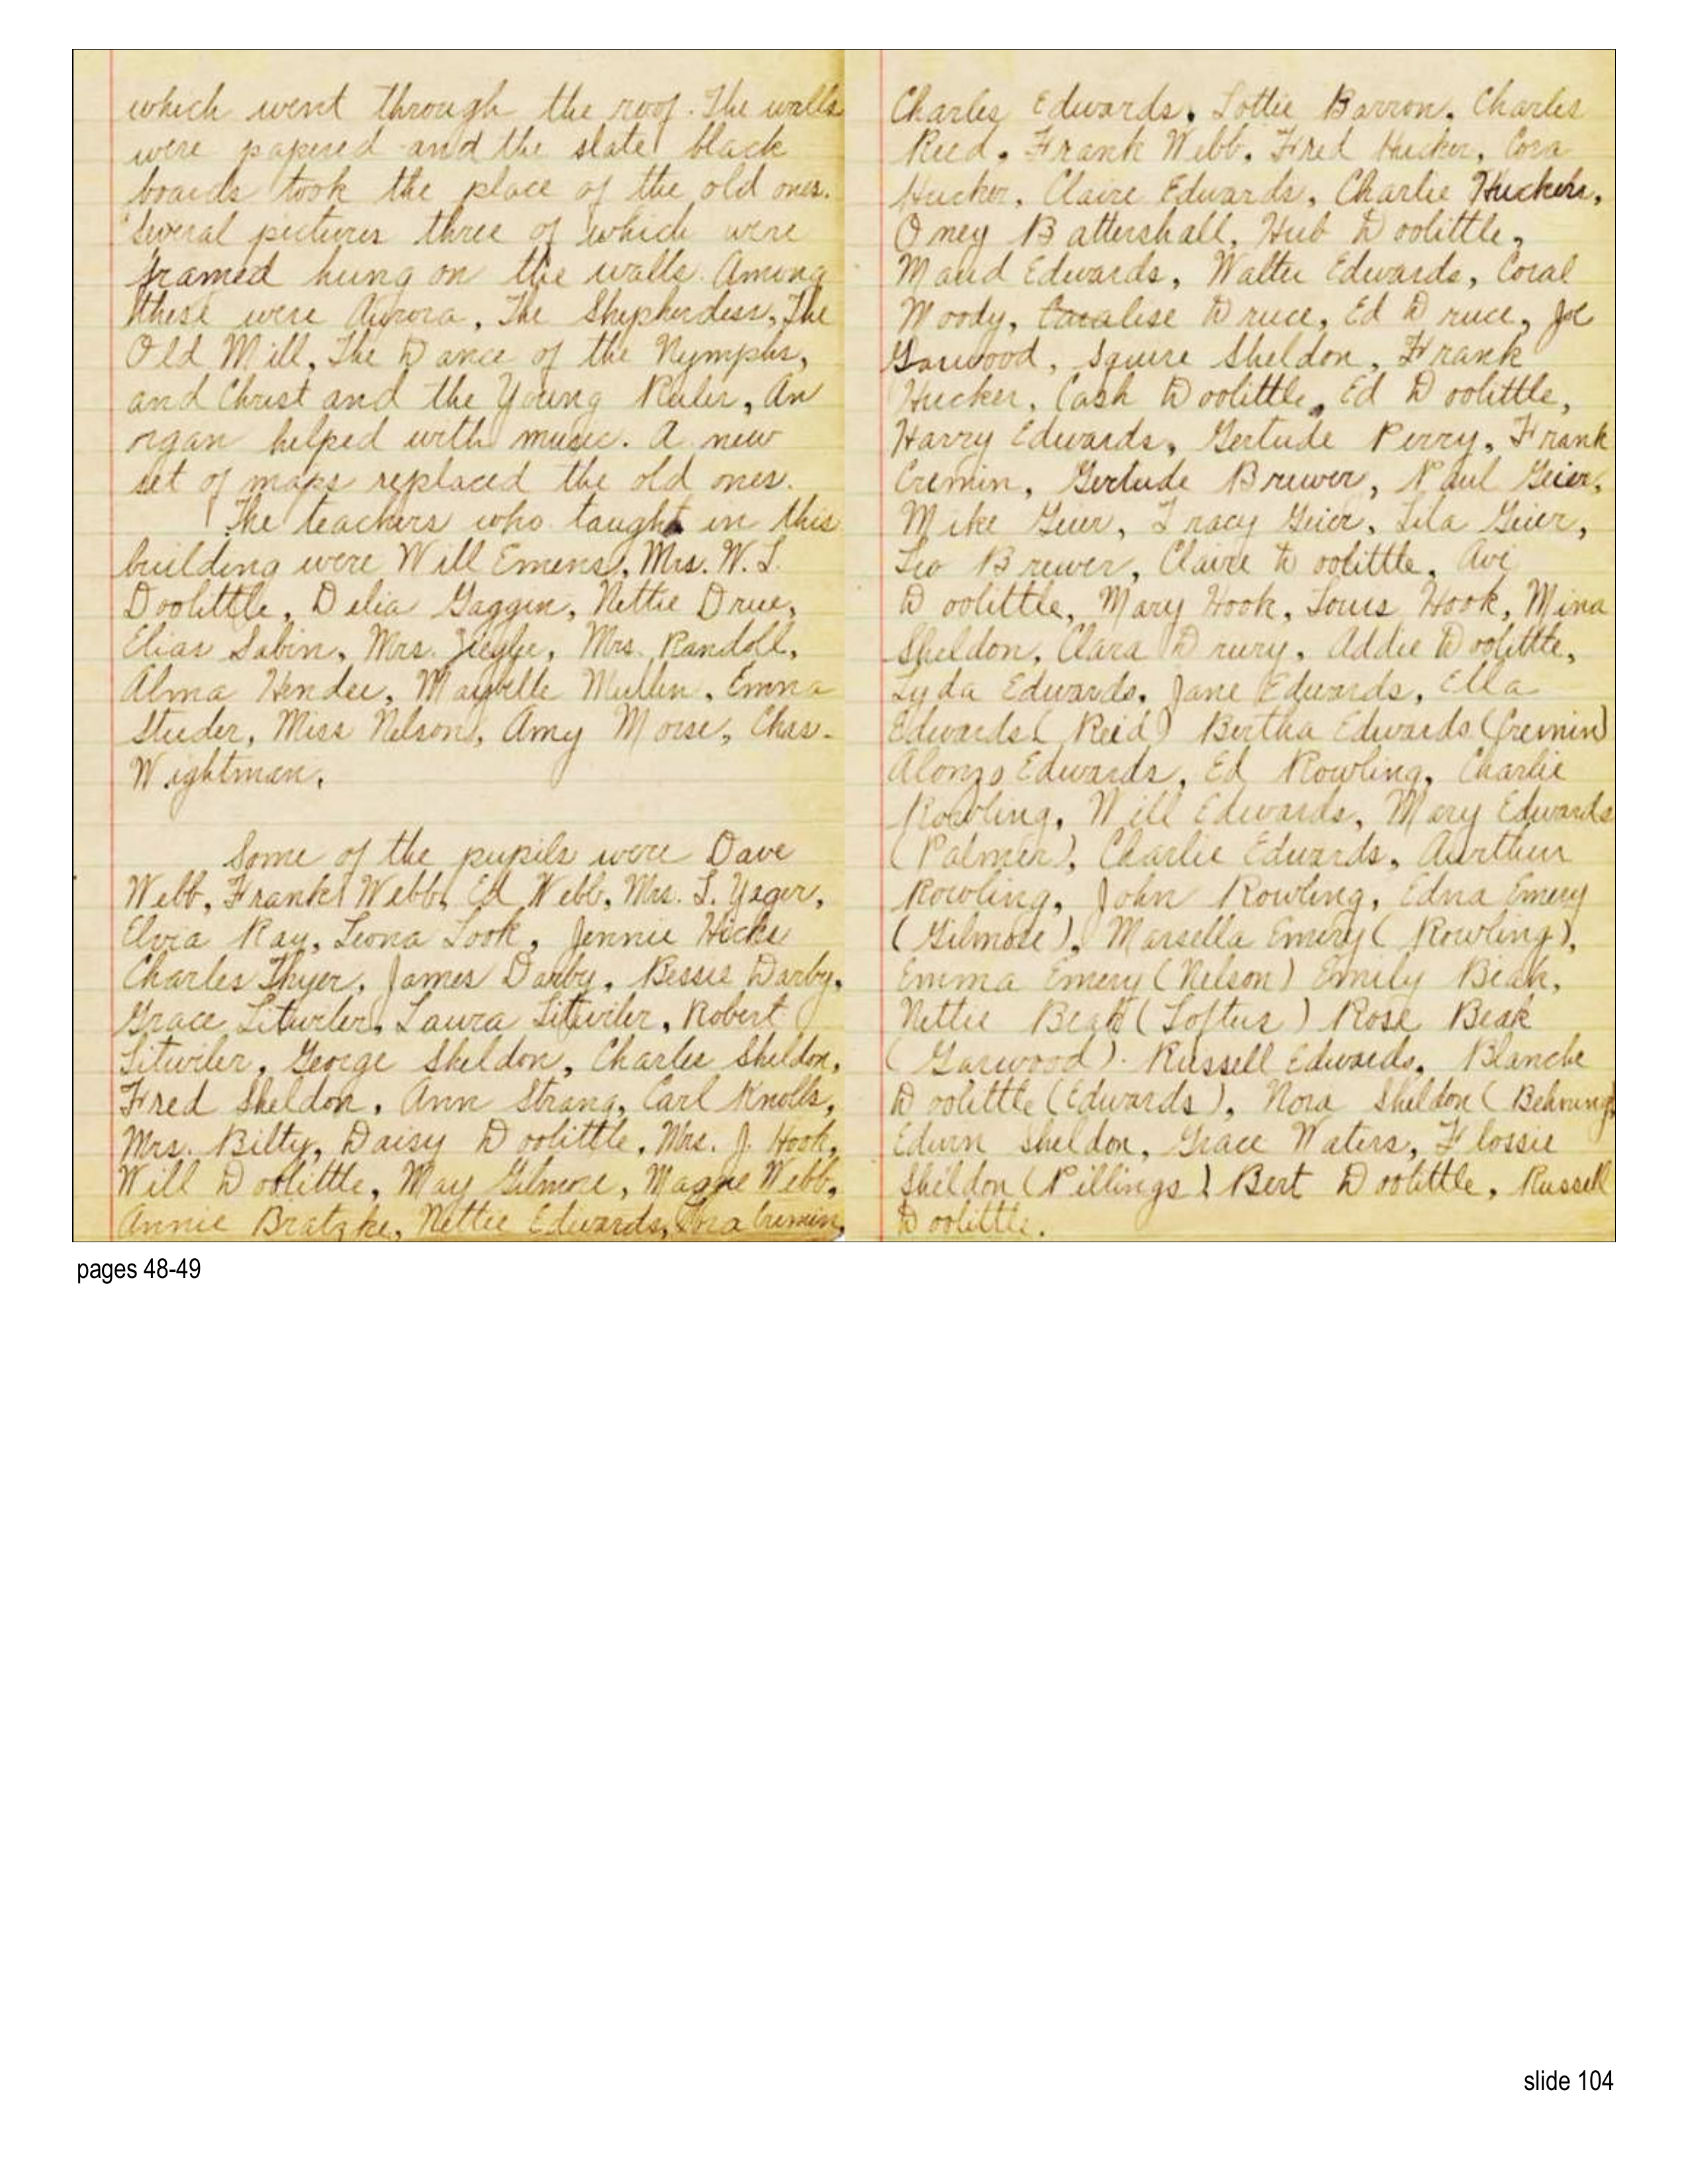 which went through the roof. The walls
were papered and the slate black
boards took the place of the old ones.
Several pictures three of which were
framed hung on the walls. Among
these were Aurora, The Shepherdess, The
Old Mill, The Dance of the Nymphs,
and Christ and the Young Ruler, An
organ helped with music. A new
set of maps replaced the old ones.
The teachers who taught in this
building were Will Emens, Mrs. W. L.
Doolittle, Delia Gaggin, Nettie Drue,
Elias Sabin, Mrs. Mrs. Randoll,
Alma Hendee, Maybelle Mullen, Emma
Studer, Miss Nelson, Amy Morse, Chas.
Wightman.
Some of the pupils were Dave
Webb, Frank Webb, Ed Webb, Mrs. L. Yager,
Elvia Ray, Leona Look, Jennie Hicks
Charles Thyer, James Darby, Bessie Darby,
Grace Litwiler, Laura Litwiler, Robert
Litwiler, George Sheldon, Charles Sheldon,
Fred Sheldon, Ann Strang, Carl Knolls,
Mrs. Bilty, Daisy Doolittle, Mrs. J. Hook,
Will Doolittle, May Gilmore, Webb,
Annie Bratzke, Nettie Edwards, Cremin,
Charles Edwards, Lottie Barron, Charles
Reed, Frank Webb, Fred Hucker, Cora
Hucker, Claire Edwards, Charlie Huckers,
Oney Battershall, Hub Doolittle,
Maud Edwards, Walter Edwards, Coral
Moody, Druce, Ed Druce, Joe
Garwood, Squire Sheldon, Frank
Hucker, Cash Doolittle, Ed Doolittle,
Harry Edwards, Gertude Perry, Frank
Cremin, Gertude Brewer, Paul Geier,
Mike Geier, Tracy Geier, Lila Geier,
Leo Brewer, Claire Doolittle, Avi
Doolittle, Mary Hook, Louis Hook, Mina
Sheldon, Clara Drury, Addie Doolittle,
Lyda Edwards, Jane Edwards, Ella
Edwards (Reid) Bertha Edwards (Cremin)
Alonzo Edwards, Ed Rowling, Charlie
Rowling, Will Edwards, Mary Edwards
(Palmer), Charlie Edwards, Aurthur
Rowling, John Rowling, Edna Emery
(Gilmore), Marsella Emery (Rowling),
Emma Emery (Nelson) Emily Beak,
Nettie Beak (Loftus) Rose Beak
(Garwood). Russell Edwards, Blanche
Doolittle (Edwards), Nora Sheldon (Behring)
Edwin Sheldon, Grace Waters, Flossie
Sheldon (Pillings) Bert Doolittle, Russell
Doolittle.
pages 48-49
slide 104